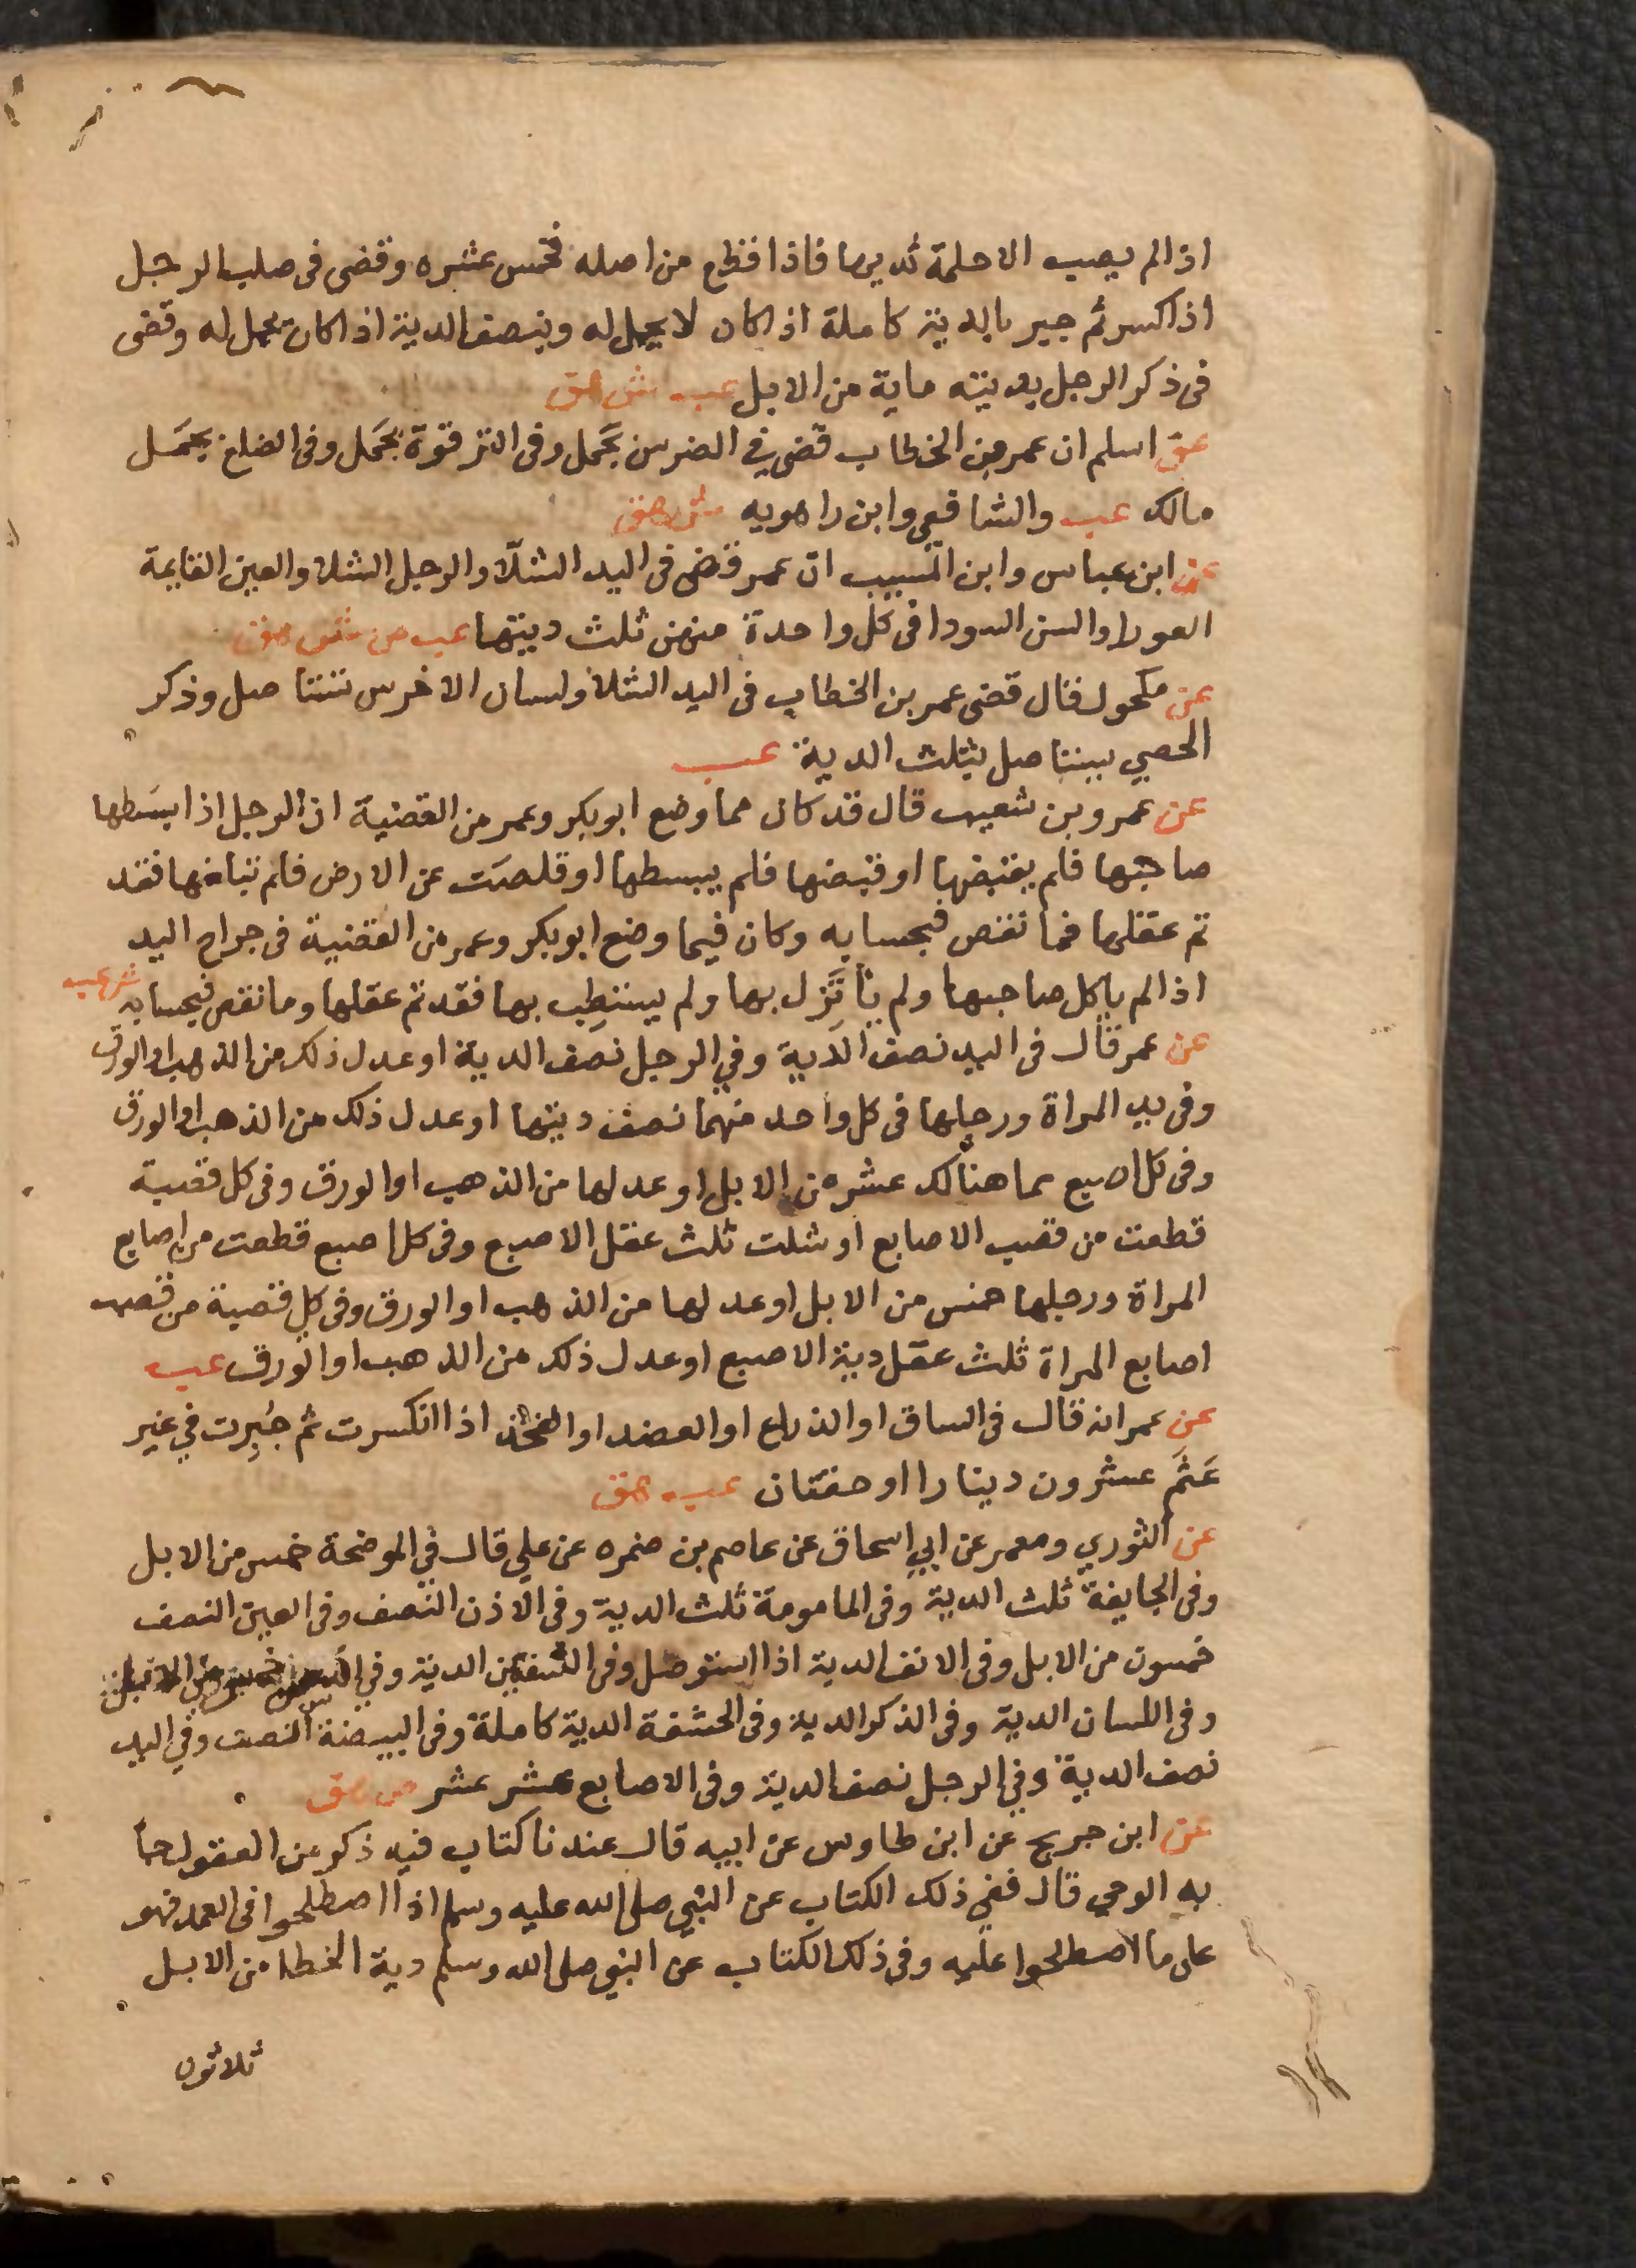 اذا لم يصب الا حلمة ثديها فاذا قطع من اصله فخمس عشره وقضى فى صلب الرجل
اذا كسر ثم جبر بالدية كاملة اذا كان لا يحمل له وبنصف الدية اذا كان يحمل له وقضى
فى ذكر الرجل بديته ماية من الابل عب ش هق
عن اسلم ان عمر بن الخطاب قضى في الضرس بجَمل وفى الترقوة بجَمل وفى الضلع بجَمَل
مالك عب والشافعي وابن راهويه ش هق
عن ابن عباس وابن المسيب ان عمر قضى فى اليد الشلّا والرجل الشلا والعين القايمة
العورا والسن السودا فى كل واحدة منهن ثلث ديتها عب ص ش هق
عن مكحول قال قضى عمر بن الخطاب فى اليد الشلا ولسان الاخرس تستاصل وذكر
الخصي يستاصل بثلث الدية عب
عن عمرو بن شعيب قال قد كان مما وضع ابو بكر وعمر من القضية ان الرجل اذا بسَطها
صاحبها فلم يقبضها او قبضها فلم يبسطها او قلصَت عن الارض فلم تبلغها فقد
تم عقلها فما نقص فبحسابه وكان فيما وضع ابو بكر وعمر من القضية فى جراح اليد
اذا لم ياكل صاحبها ولم ياتَزِل بها ولم يستطِب بها فقد تم عقلها وما نقص فبحسابه ش عب
عن عمر قال فى اليد نصف الدية وفي الرجل نصف الدية او عدل ذلك من الذهب او الورق
وفى يد المراة ورجلها فى كل واحد منهما نصف ديتها او عدل ذلك من الذهب او الورق
وفى كل اصبع مما هنالك عشر من الابل او عدلها من الذهب او الورق وفى كل قصبة
قطعت من قصب الاصابع او شلت ثلث عقل الاصبع وفى كل اصبع قطعت من اصابع
المراة ورجلها خمس من الابل او عدلها من الذهب او الورق وفى كل قصبة من قصب
اصابع المراة ثلث عقل دية الاصبع او عدل ذلك من الذهب او الورق عب
عن عمر انه قال فى الساق او الذراع او العضد او الفخذ اذا انكسرت ثم جُبِرت في غير
عَثَم عشرون دينارا او حقتان عب هق
عن الثوري ومعمر عن ابي اسحاق عن عاصم بن ضمره عن علي قال في الموضحة خمس من الابل
وفى الجايفة ثلث الدية وفى المامومة ثلث الدية وفى الاذن النصف وفى العين النصف
خمسون من الابل وفى الانف الدية اذا استوصل وفى الشفتين الدية وفي السن خمس من الابل
وفى اللسان الدية وفى الذكر الدية وفى الحشفة الدية كاملة وفى البيضة النصف وفي اليد
نصف الدية وفي الرجل نصف الدية وفى الاصابع عشر عشر ص هق
عن ابن جريج عن ابن طاوس عن ابيه قال عندنا كتاب فيه ذكر من العقول جا
به الوحي قال ففي ذلك الكتاب عن النبي صلى الله عليه وسلم اذا اصطلحوا فى العمد فهو
على ما اصطلحوا عليه وفى ذلك الكتاب عن النبي صلى الله وسلم دية الخطا من الابل
ثلاثون